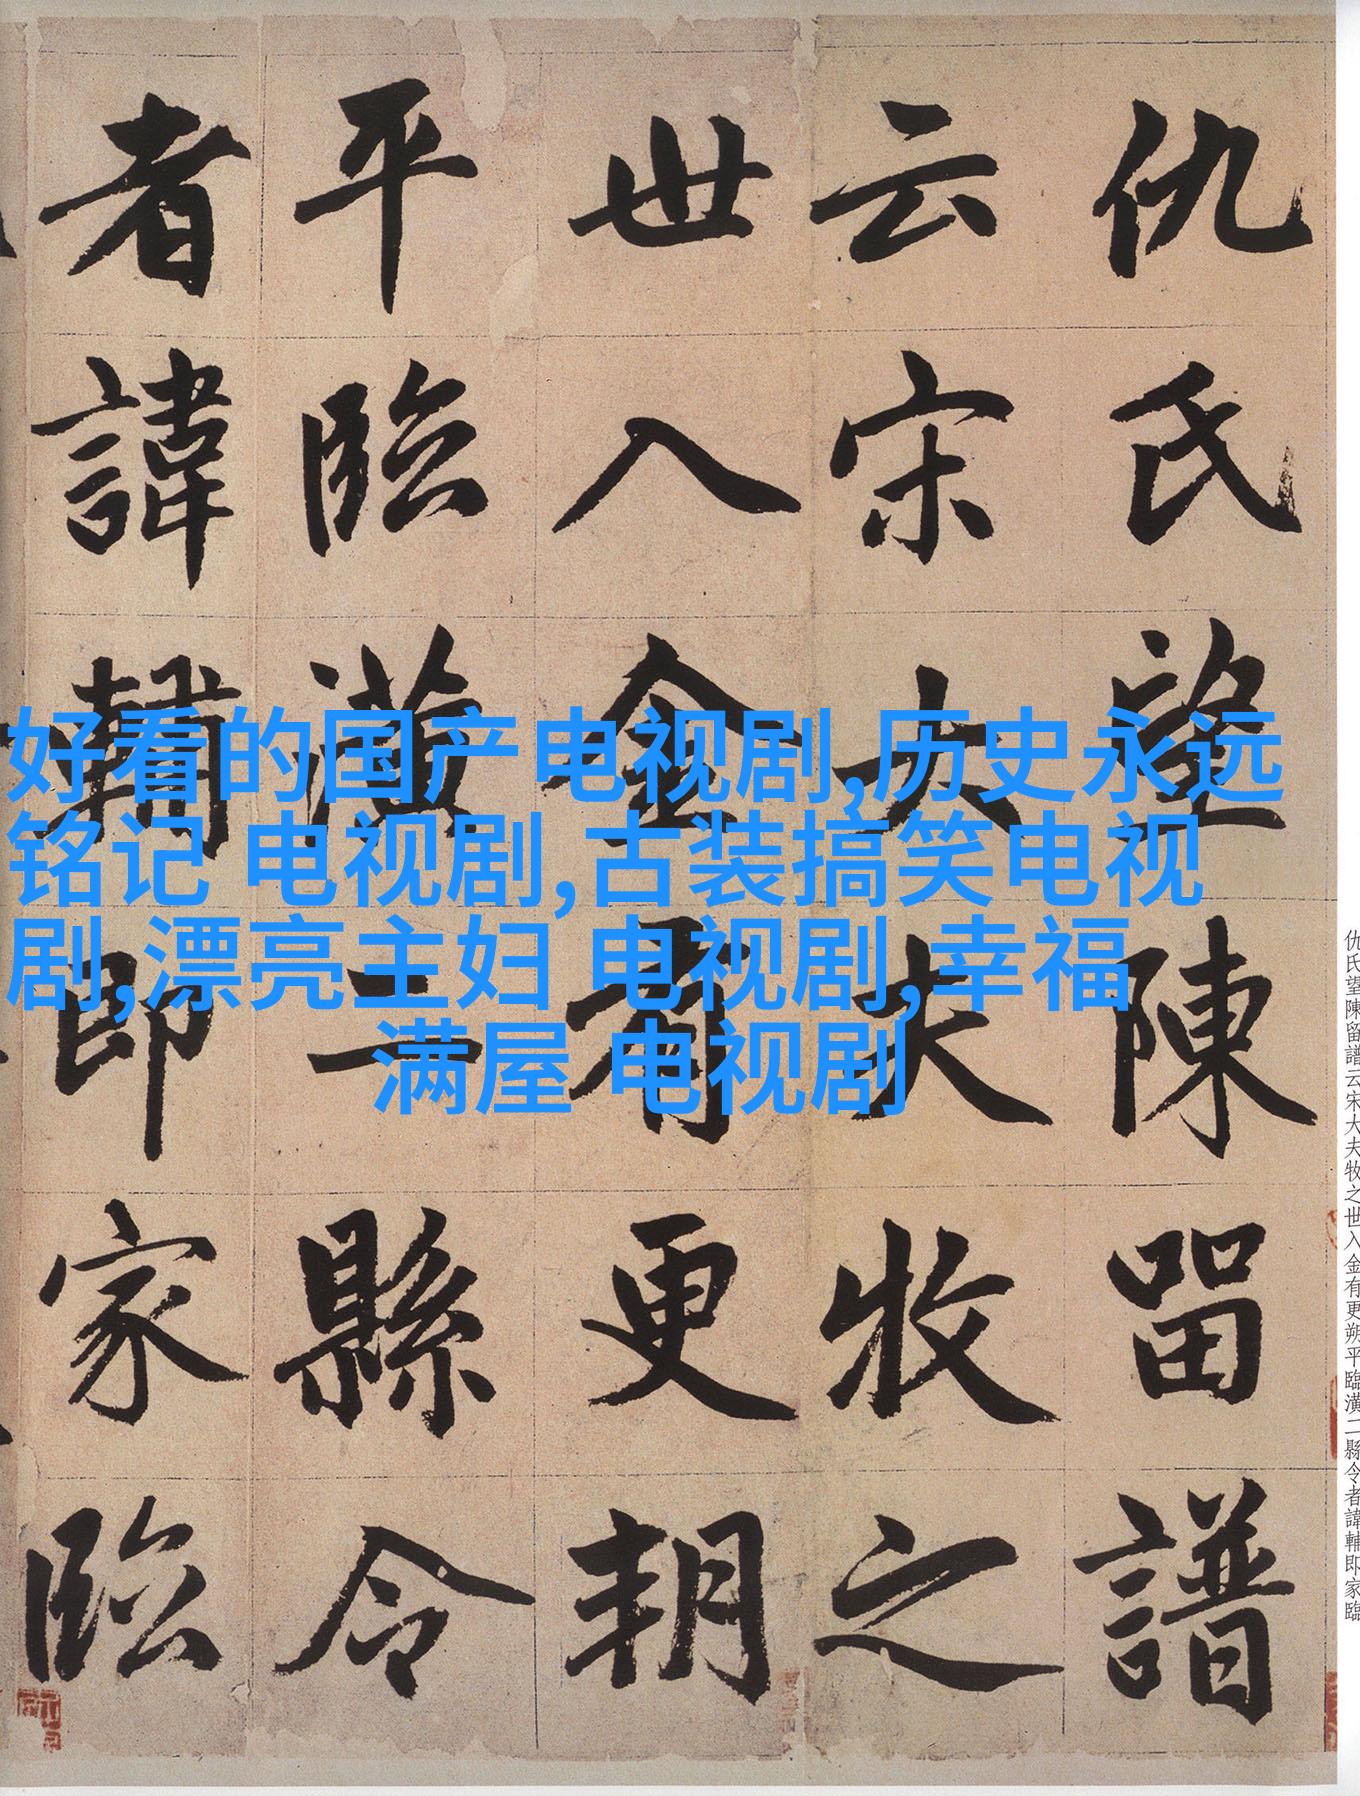 仇氏望陳留譜
云宋大夫牧之
世入金有更朔
平臨潢二縣令
者諱輔即家臨
好看的国产电视剧,历史永远
铭记 电视剧,古装搞笑电视
剧,漂亮主妇 电视剧,幸福
满屋 电视剧
仇氏望陳留譜云宋大夫牧之世入金有更朔平臨潢二縣令者諱輔即家臨